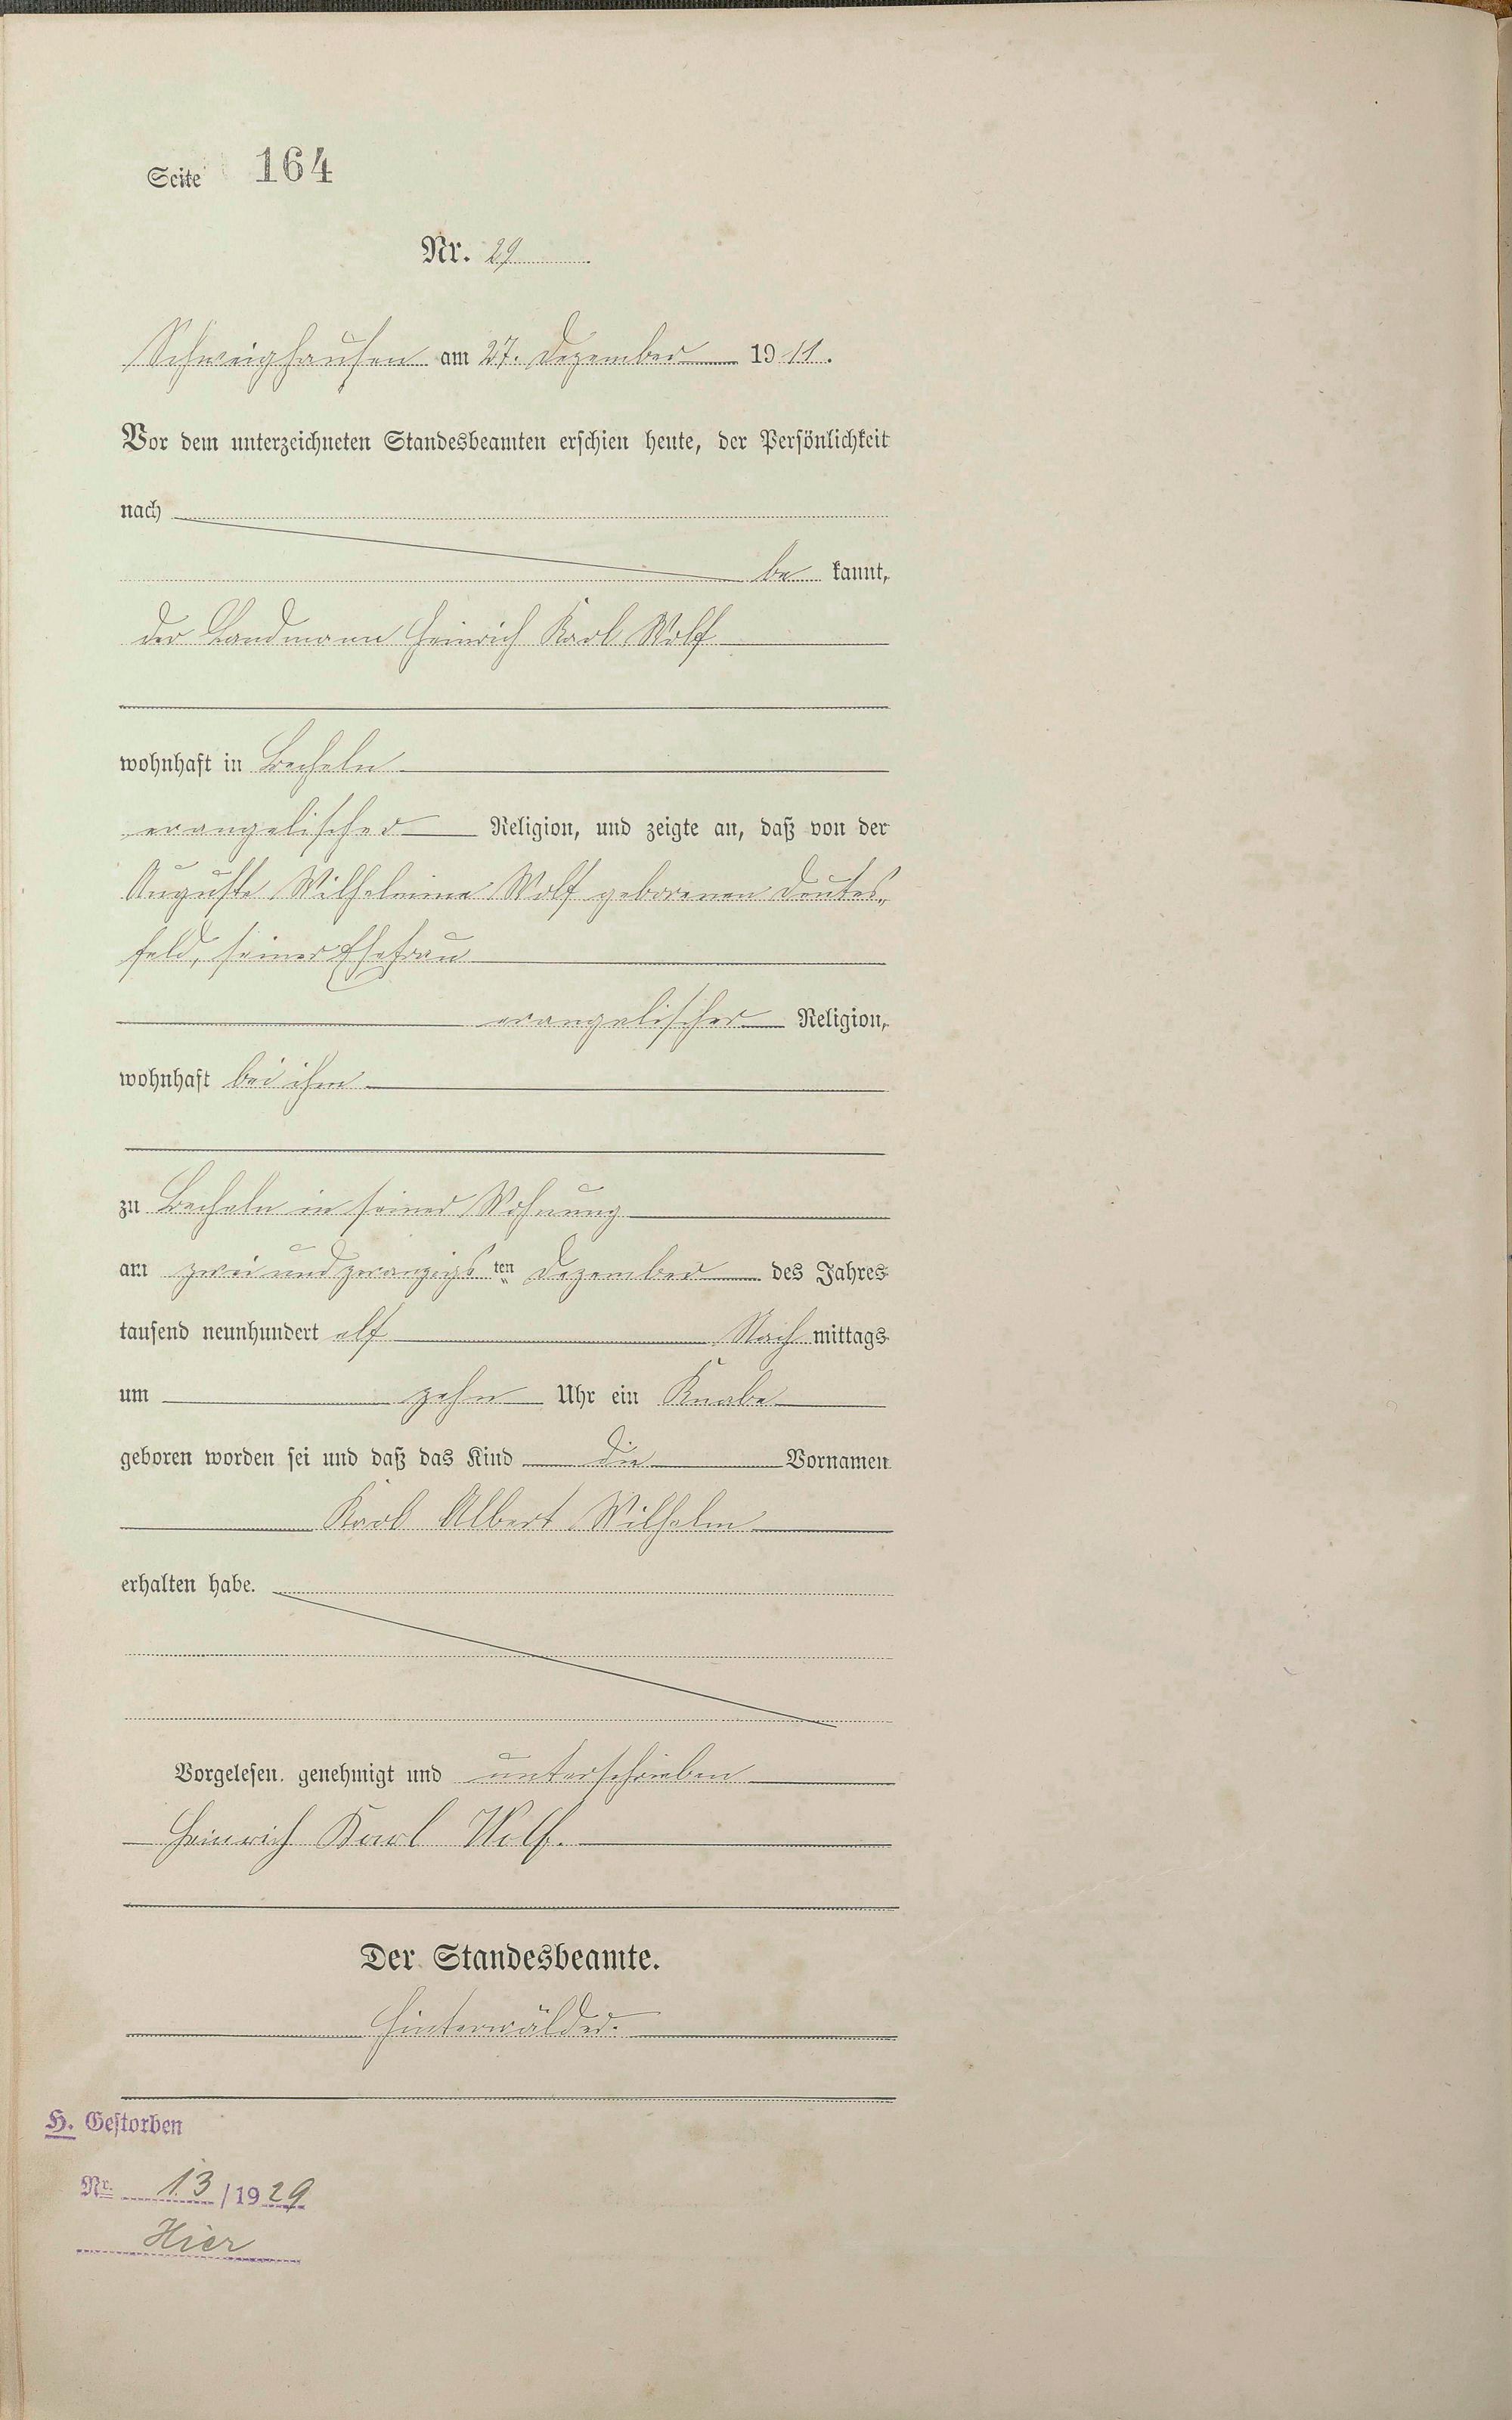 Seite 164
Nr. 29
Schweighausen am 27. Dezember 1911.
Vor dem unterzeichneten Standesbeamten erschien heute, der Persönlichkeit
nach
be kannt,
der Landmann Heinrich Karl Wolf
wohnhaft in Becheln
evangelischer Religion, und zeigte an, daß von der
Auguste Wilhelmine Wolf geborenen Deutes„
feld, seiner Ehefrau
evangelischer Religion,
wohnhaft bei ihm
zu Becheln in seiner Wohnung
am zwei und zwanzigs ten Dezember des Jahres
tausend neunhundert elf Nach mittags
um zehn Uhr ein Knabe
geboren worden sei und daß das Kind die Vornamen
Karl Albert Wilhelm
erhalten habe.
Vorgelesen, genehmigt und unterschrieben
Heinrich Karl Wolf.
Der Standesbeamte.
Hinterwälder.
H. Gestorben
Nr. 13/1929
Hier